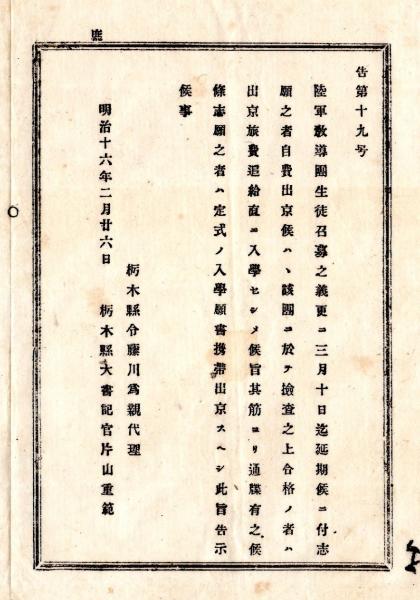 告第十九号
陸軍敎導團生徒召募之義更ニ三月十日迄延期候ニ付志
願之者自費出京候ハヽ該團ニ於テ撿査之上合格ノ者ハ
出京旅費追給直ニ入學セシメ候旨其筋ヨリ通牒有之候
條志願之者ハ定式ノ入學願書携帶出京スヘシ此旨告示
候事
明治十六年二月廿六日
栃木縣令藤川爲親代理
栃木縣大書記官片山重範